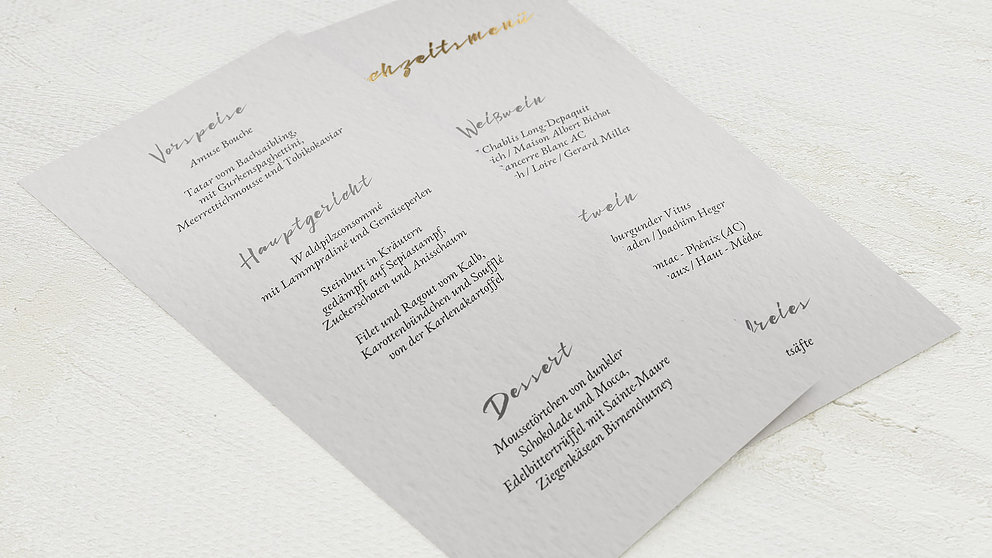 Vorspeise
Amuse Bouche
Tatar vom Bachsaibling,
mit Gurkenspaghettini,
Meerrettichmousse und Tobikokaviar
Hauptgericht
Waldpilzconsommé
mit Lammpraliné und Gemüseperlen
Steinbutt in Kräutern
gedämpft auf Sepiastampf,
Zuckerschoten und Anisschaum
Filet und Ragout vom Kalb,
Karottenbündchen und Soufflé
von der Karlenakartoffel
Dessert
Moussetörtchen von dunkler
Schokolade und Mocca,
Edelbittertrüffel mit Sainte-Maure
Ziegenkäsean Birnenchutney
chzeitsmenü
Weißwein
Chablis Long-Depaquit
ich / Maison Albert Bichot
Sancerre Blanc AC
ch / Loire / Gerard Millet
twein
burgunder Vitus
aden / Joachim Heger
mtac - Phénix (AC)
aux / Haut - Médoc
freies
tsäfte